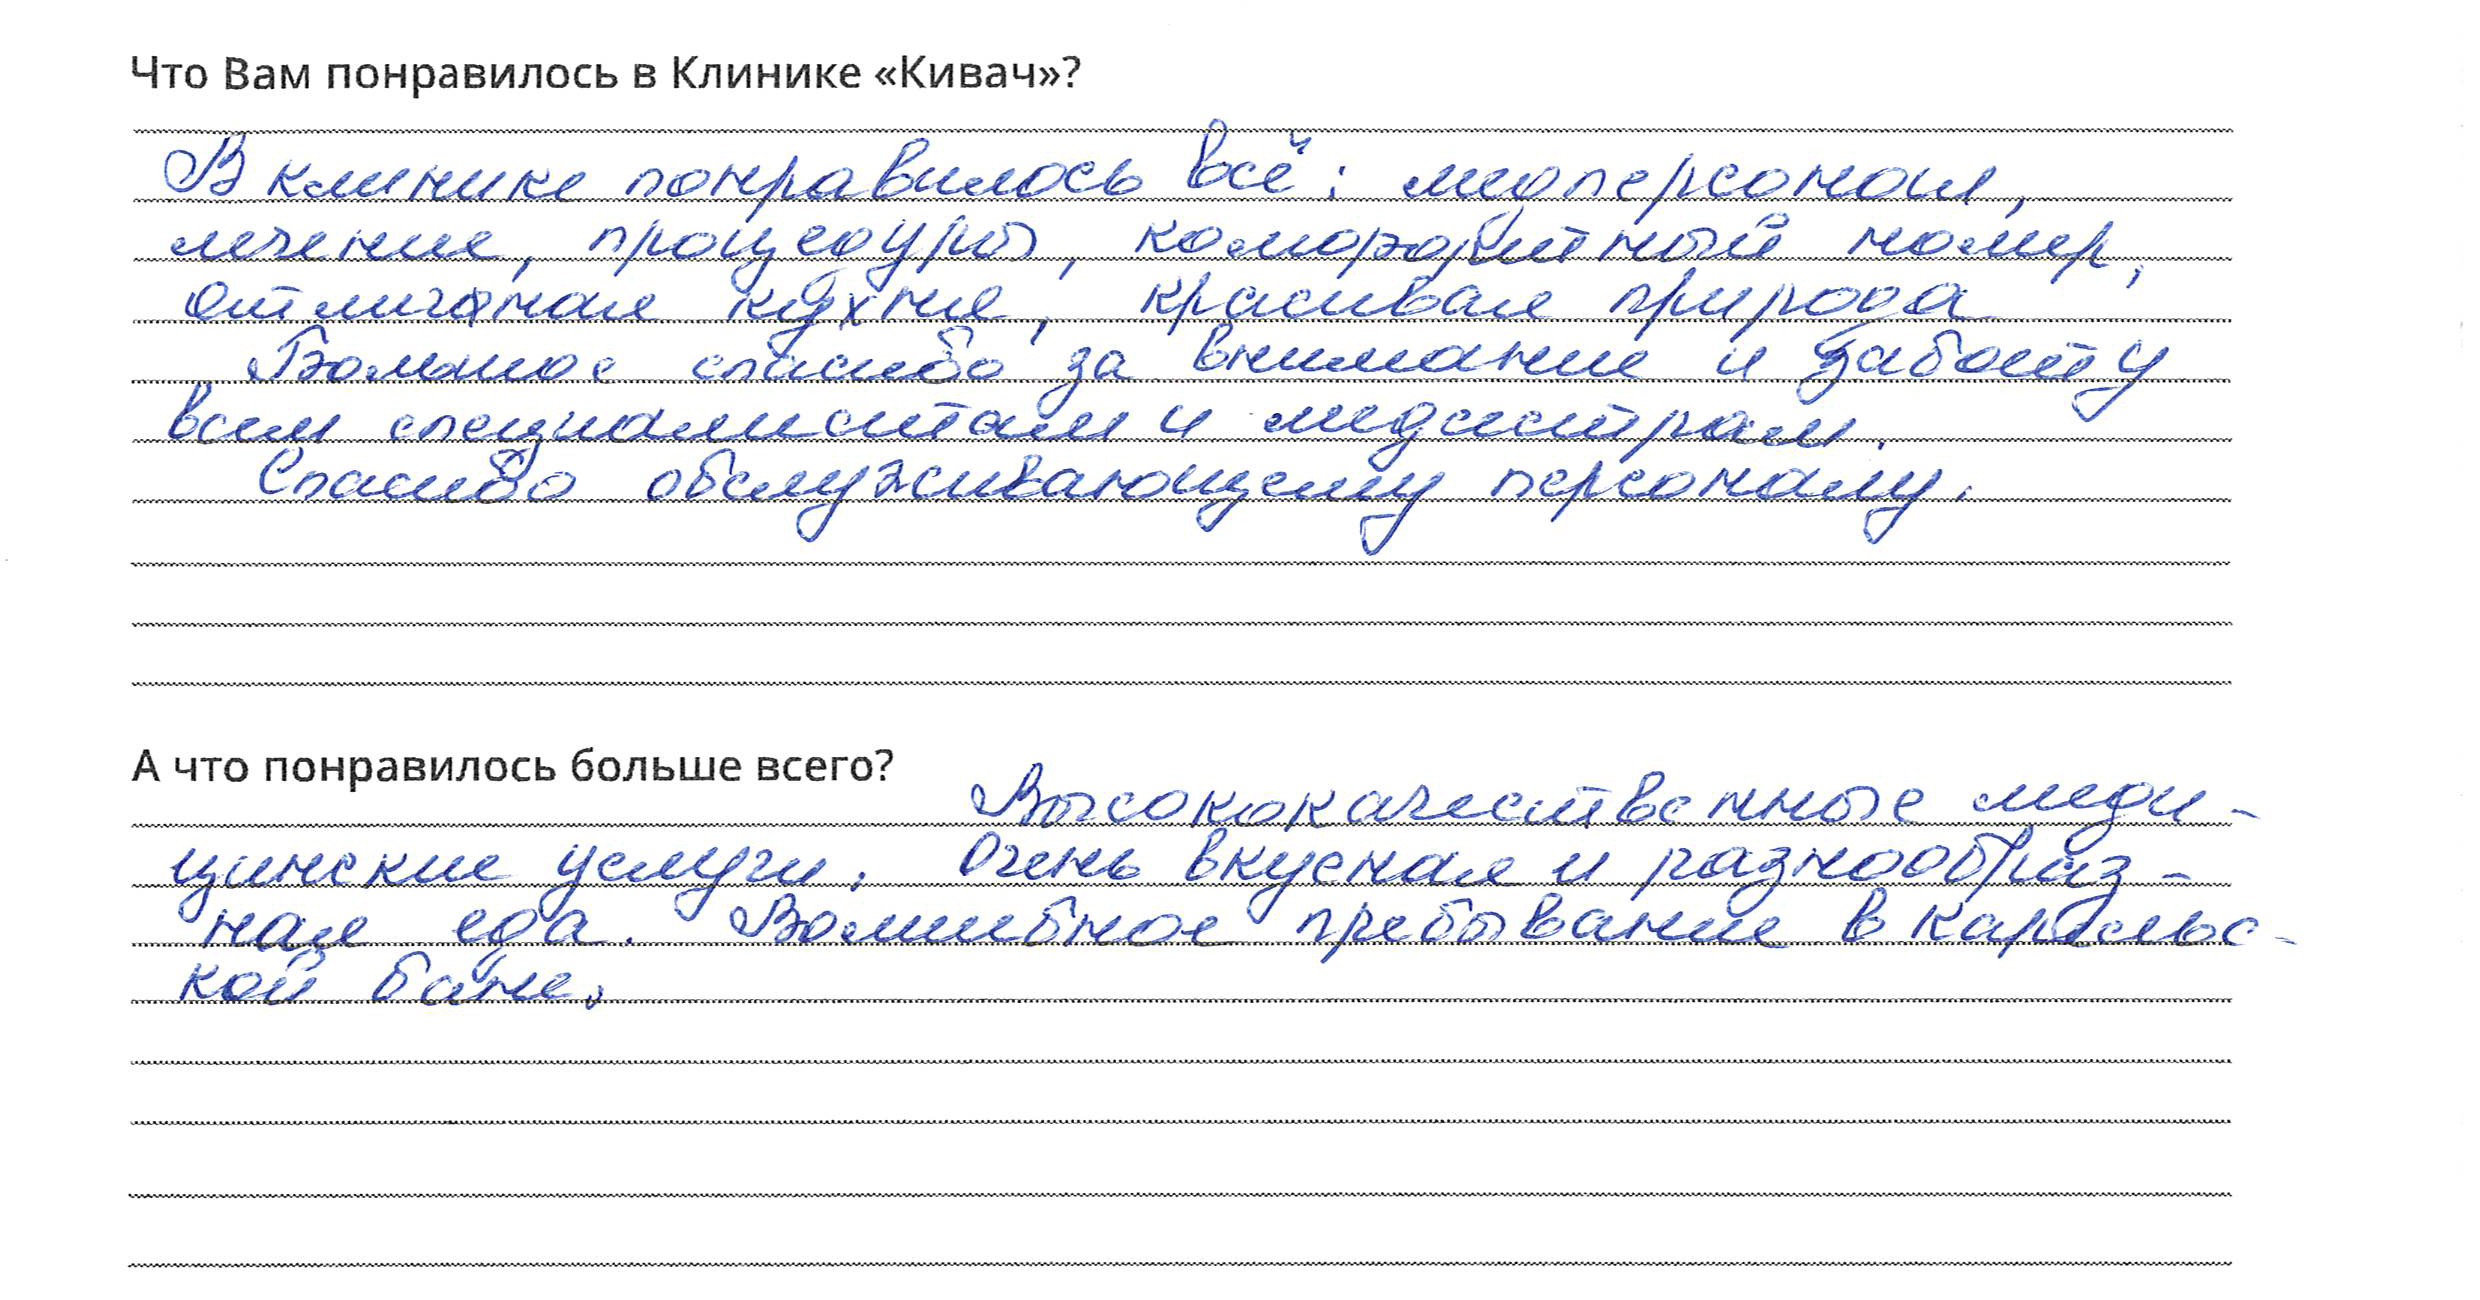 Что Вам понравилось в Клинике «Кивач»?
В клинике понравилось всё: медперсонал,
лечение, процедуры, комфортный номер,
отличная кухня, красивая природа
Большое спасибо за внимание и заботу
всем специалистам и медсестрам.
Спасибо обслуживающему персоналу.
А что понравилось больше всего?
Высококачественные меди-
цинские услуги. Очень вкусная и разнообраз-
ная еда. Волшебное пребывание в карельс-
кой бане.